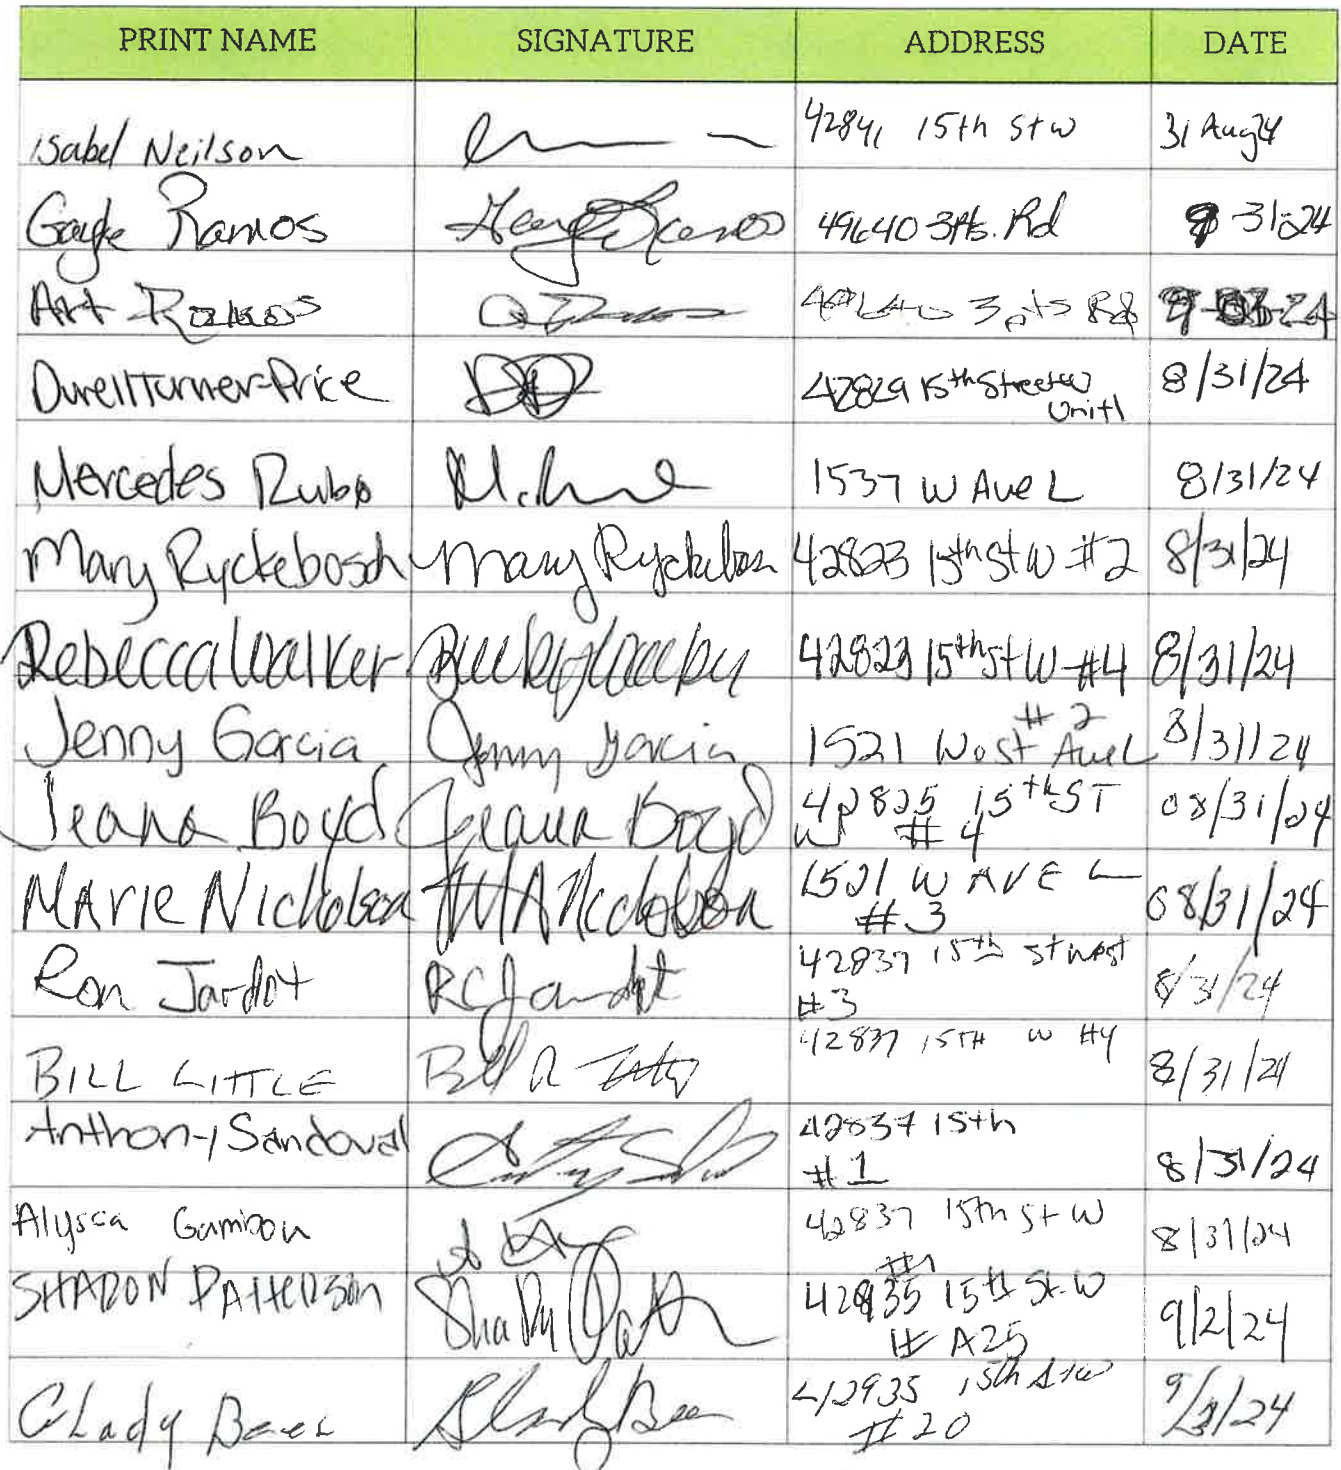 PRINT NAME SIGNATURE ADDRESS DATE
Isabel Neilson 42841 15th St W 31 Aug 24
Gayle Ramos 49640 3 Pts. Rd 8-31-24
Art Ramos 3 pts Rd
Durell Turner-Price 42829 15th Street W 8/31/24
Unit 1
Mercedes Rubo 1537 W Ave L 8/31/24
Mary Ryckebosch Mary Ryckebosch 42823 15th St W #2 8/31/24
Rebecca Walker 42823 15th St W #4 8/31/24
# 2
Jenny Garcia Jenny Garcia 1521 West Ave L 8/31/24
Jeana Boyd Jeana Boyd 42825 15th ST 08/31/24
W # 4
MARIE Nicholson MA Nicholson 1521 W AVE L 08/31/24
# 3
Ron Jardot 42837 15th St West 8/31/24
#3
BILL LITTLE 42837 15TH W #4 8/31/24
Anthony Sandoval 42837 15th 8/31/24
# 1
Alysca 42837 15th St W 8/31/24
SHARON PATTERSON 42935 15th St. W 9/2/24
# A25
Glady Beer 42935 15th St W
# 20